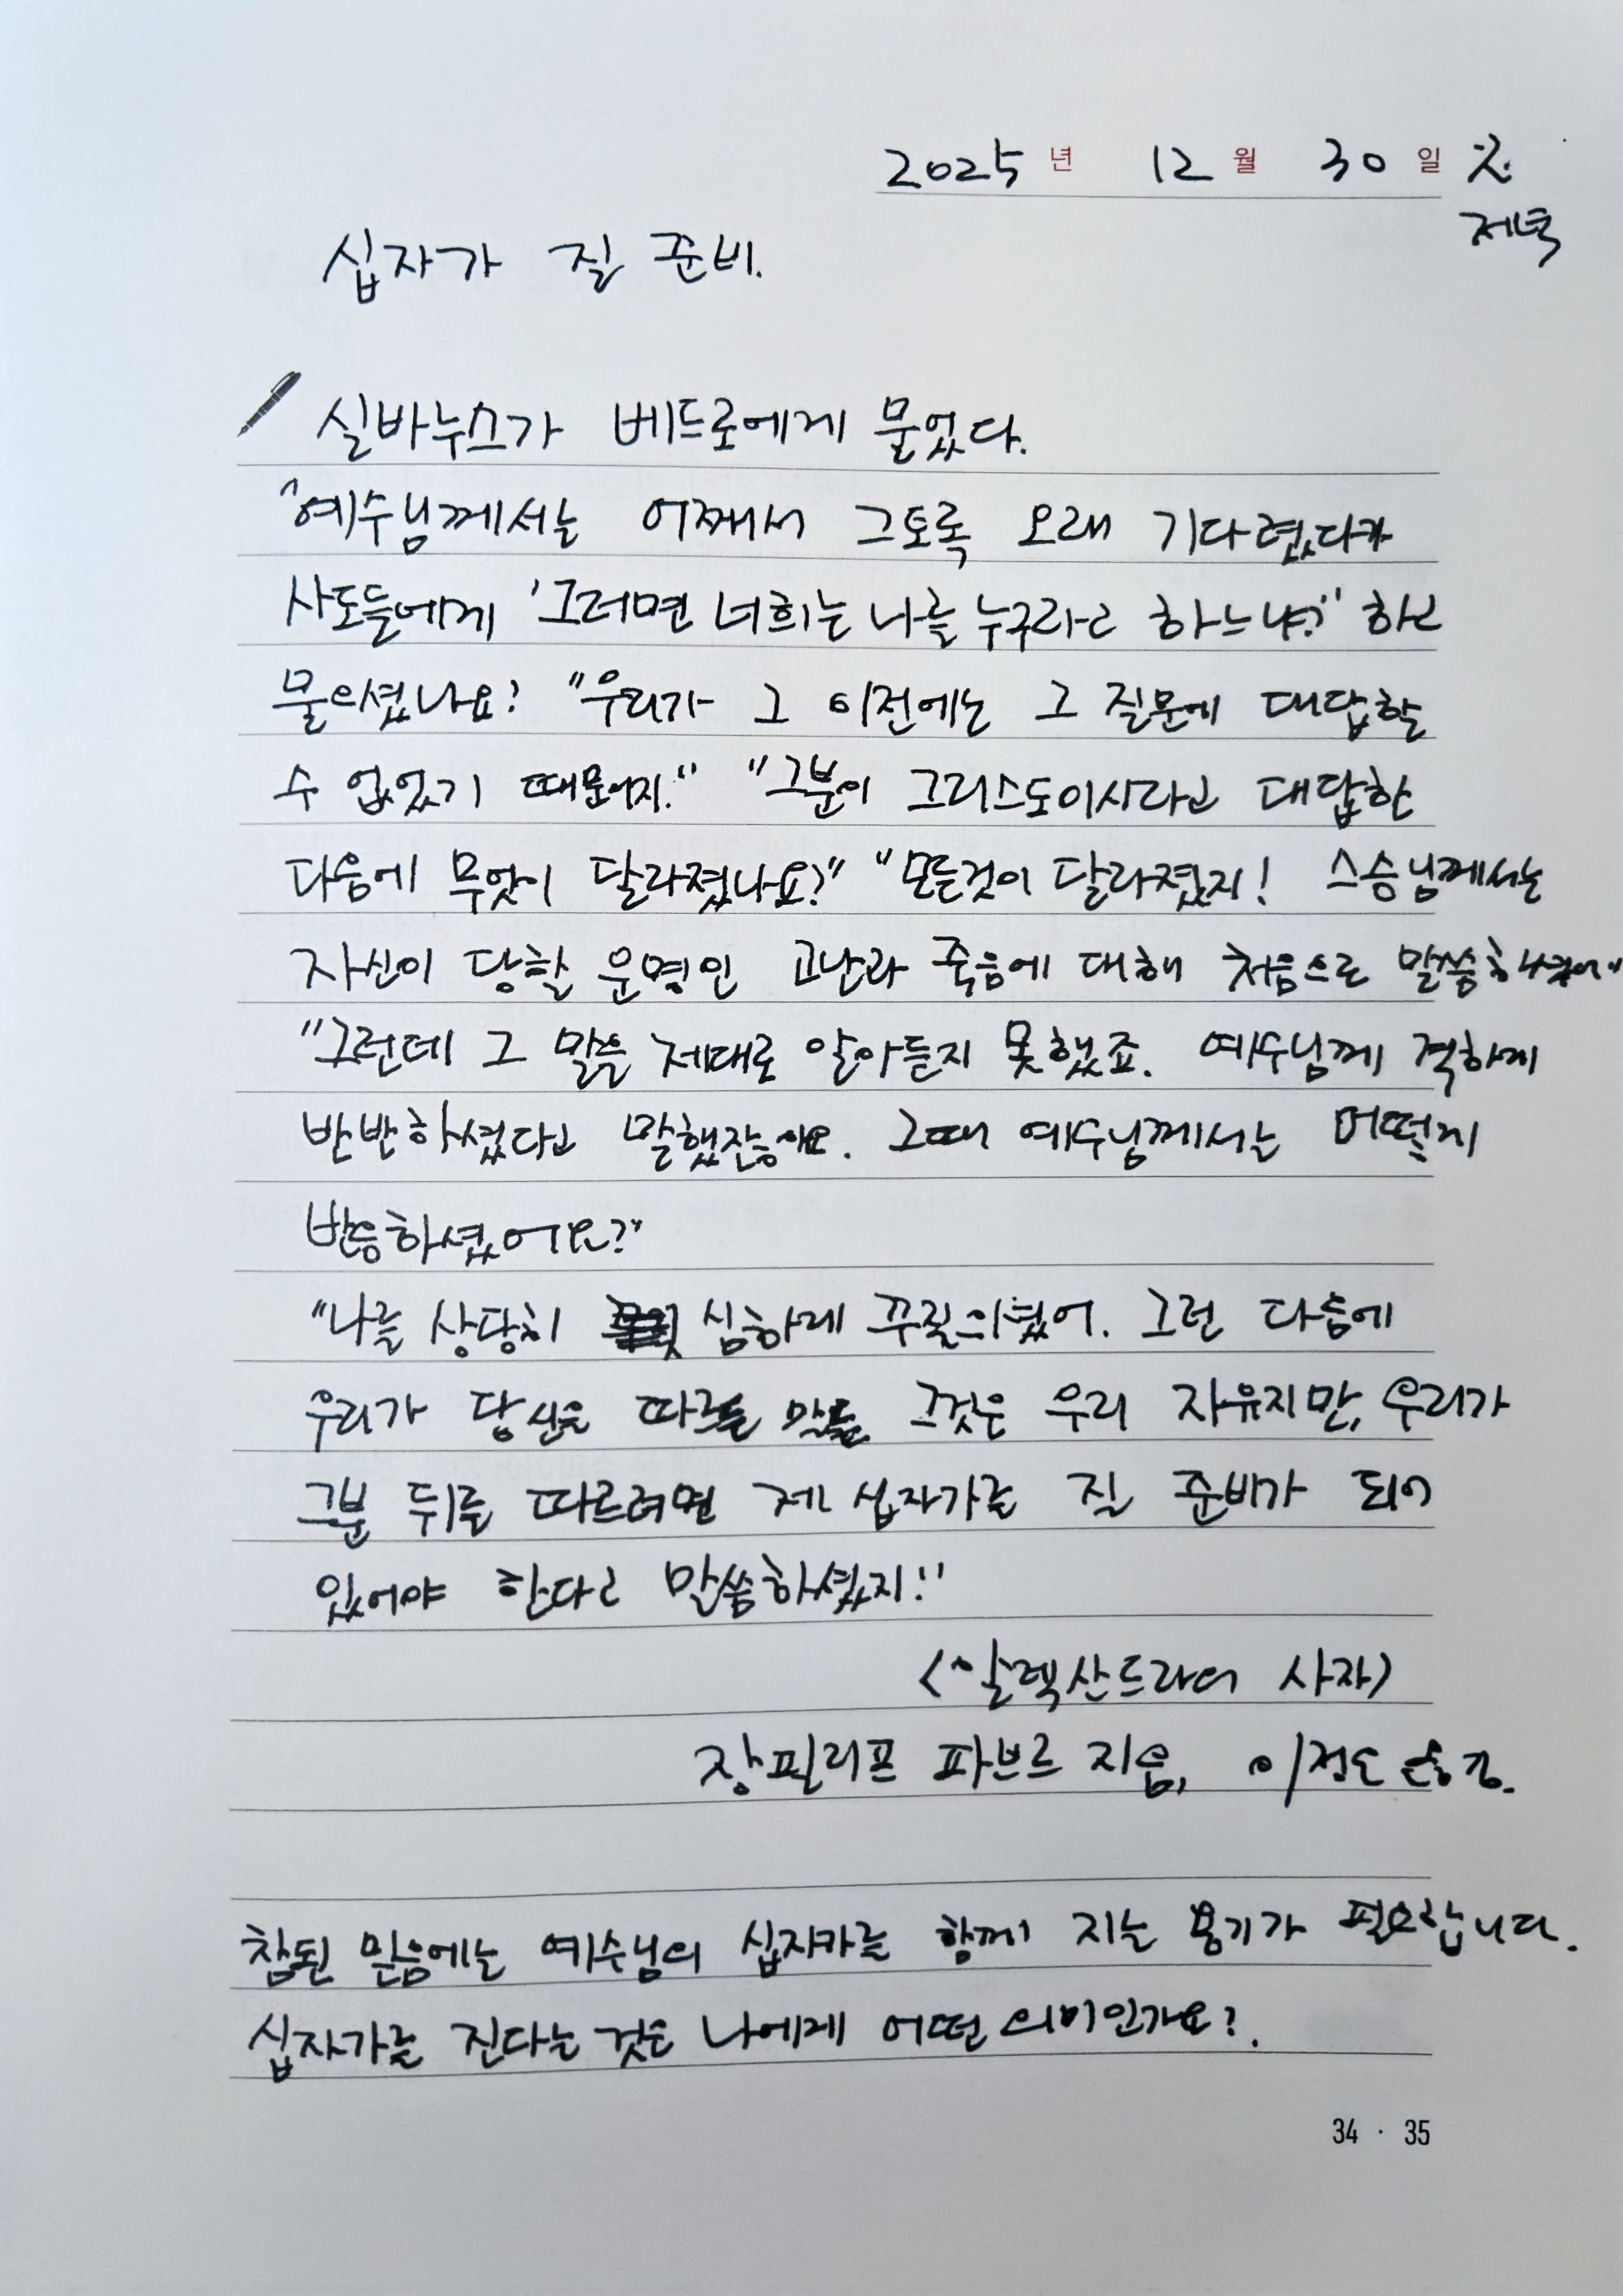 2025년 12월 30일 화
저녁
십자가 질 준비.
실바누스가 베드로에게 물었다.
"예수님께서는 어째서 그토록 오래 기다렸다가
사도들에게 '그러면 너희는 나를 누구라고 하느냐?" 하고
물으셨나요? "우리가 그 이전에는 그 질문에 대답할
수 없었기 때문이지." "그분이 그리스도이시라고 대답한
다음에 무엇이 달라졌나요?" "모든것이 달라졌지! 스승님께서는
자신이 당할 운명인 고난과 죽음에 대해 처음으로 말씀하셨어"
"그런데 그 말을 제대로 알아듣지 못했죠. 예수님께 격하게
반반하셨다고 말했잖아요. 그때 예수님께서는 어떻게
반응하셨어요?"
"나를 상당히 심하게 꾸짖으셨어. 그런 다음에
우리가 당신을 따르들 말들 그것은 우리 자유지만, 우리가
그분 뒤를 따르려면 제 십자가를 질 준비가 되어
있어야 한다고 말씀하셨지!"
<알렉산드리아의 사자>
장필리프 파브르 지음, 이정은 옮김.
참된 믿음에는 예수님의 십자가를 함께 지는 용기가 필요합니다.
십자가를 진다는 것은 나에게 어떤 의미인가요?.
34 · 35